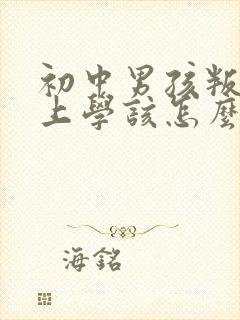 初中男孩叛
上學該怎麼
海銘